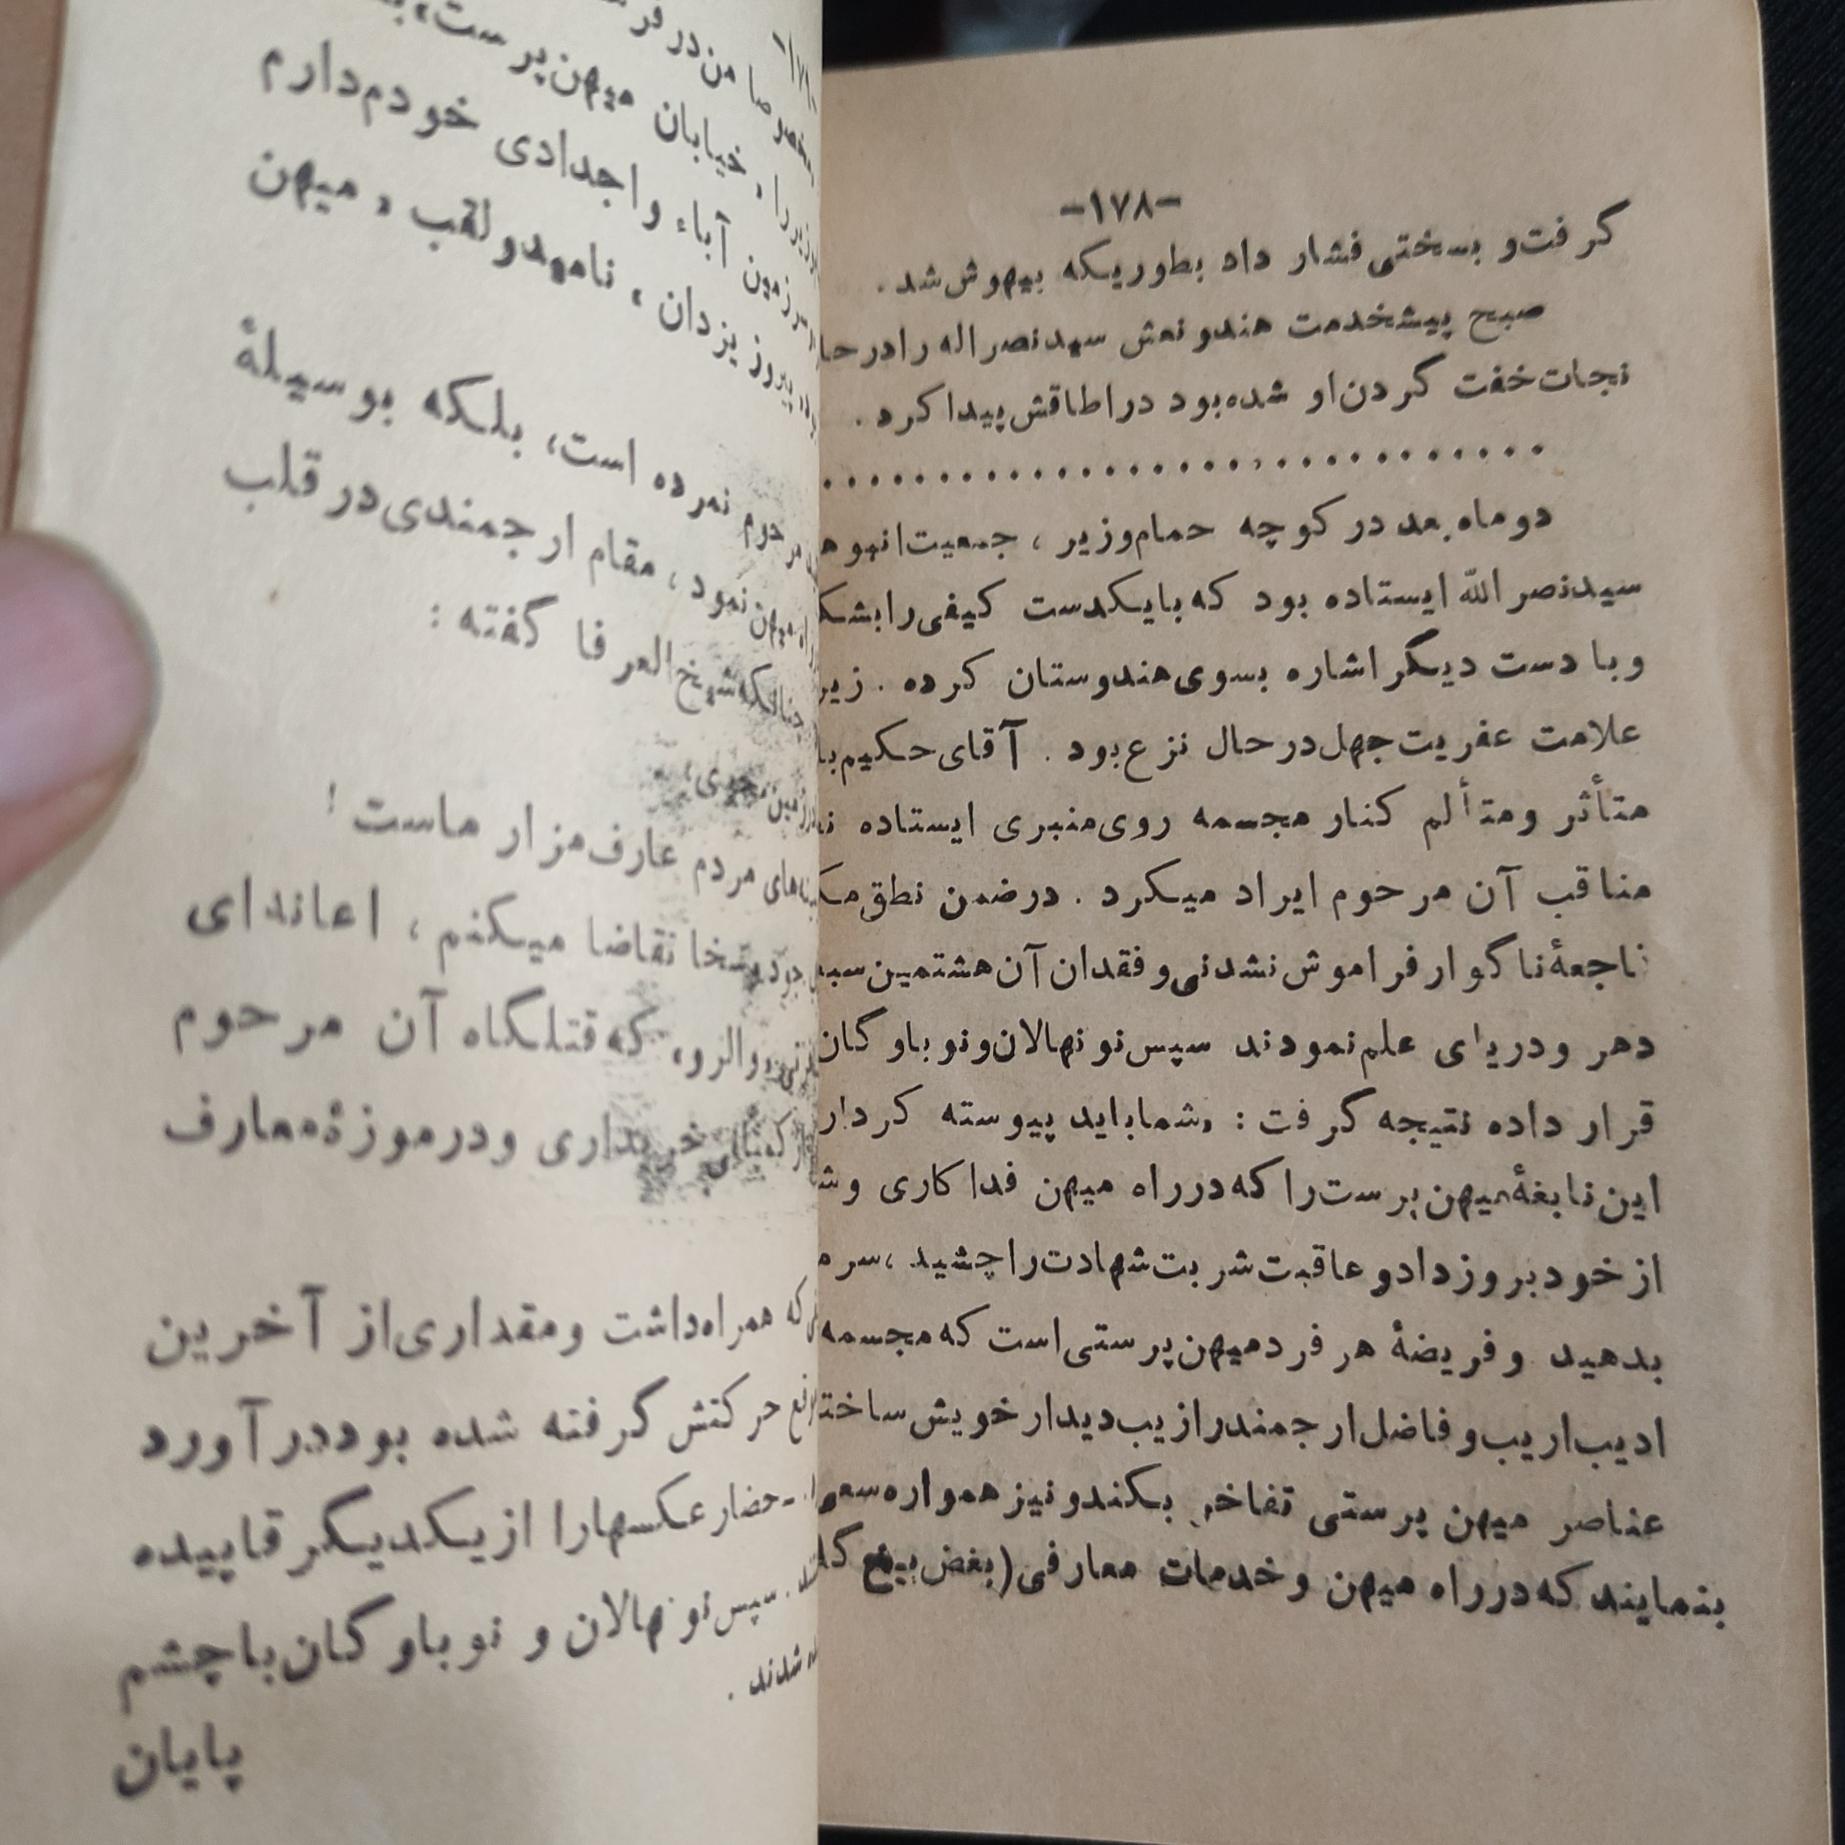 -۱۷۸-
گرفت و بسختی فشار داد بطوریکه بیهوش شد.
صبح پیشخدمت هندو نعش سید نصراله را در حا
نجات خفت کردن او شده بود در اطاقش پیدا کرد.
................................
دو ماه بعد در کوچه حمام وزیر ، جمعیت انبوه
سید نصرالله ایستاده بود که با یکدست کیفی را بشک
و با دست دیگر اشاره بسوی هندوستان کرده . زیر
علامت عفریت جهل در حال نزع بود . آقای حکیم با
متأثر و متألم کنار مجسمه روی منبری ایستاده
مناقب آن مرحوم ایراد میکرد . در ضمن نطق مک
ناجعهٔ ناگوار فراموش نشدنی و فقدان آن هشتمین سبع
دهر و دریای علم نمودند سپس نونهالان و نوباوگان
قرار داده نتیجه گرفت : «شما باید پیوسته کردار
این نابغهٔ میهن پرست را که در راه میهن فداکاری و ش
از خود بروز داد و عاقبت شربت شهادت را چشید ، سرم
بدهید و فریضهٔ هر فرد میهن پرستی است که مجسمه
ادیب اریب و فاضل ارجمند را زیب دیدار خویش ساخت
عناصر میهن پرستی تفاخر بکند و نیز همواره سعی
بنمایند که در راه میهن و خدمات معارفی (بغض بیضع گل
-۱۷۹-
مخصوصا من در
خیابان میهن پرست،
سرزمین آباء و اجدادی خودم دارم
پیروز یزدان ، نامید و لقب « میهن
مرحوم نمرده است، بلکه بوسیلهٔ
میهن نمود ، مقام ارجمندی در قلب
چنانکه شیخ العرفا گفته :
زمین
های مردم عارف مزار ماست !
تقاضا میکنم ، اعانه‌ای
والرو، که قتلگاه آن مرحوم
خریداری و در موزهٔ معارف
که همراه داشت و مقداری از آخرین
حرکتش گرفته شده بود در آورد
حضار عکسها را از یکدیگر قاپیده
سپس نونهالان و نوباوگان با چشم
شدند .
پایان